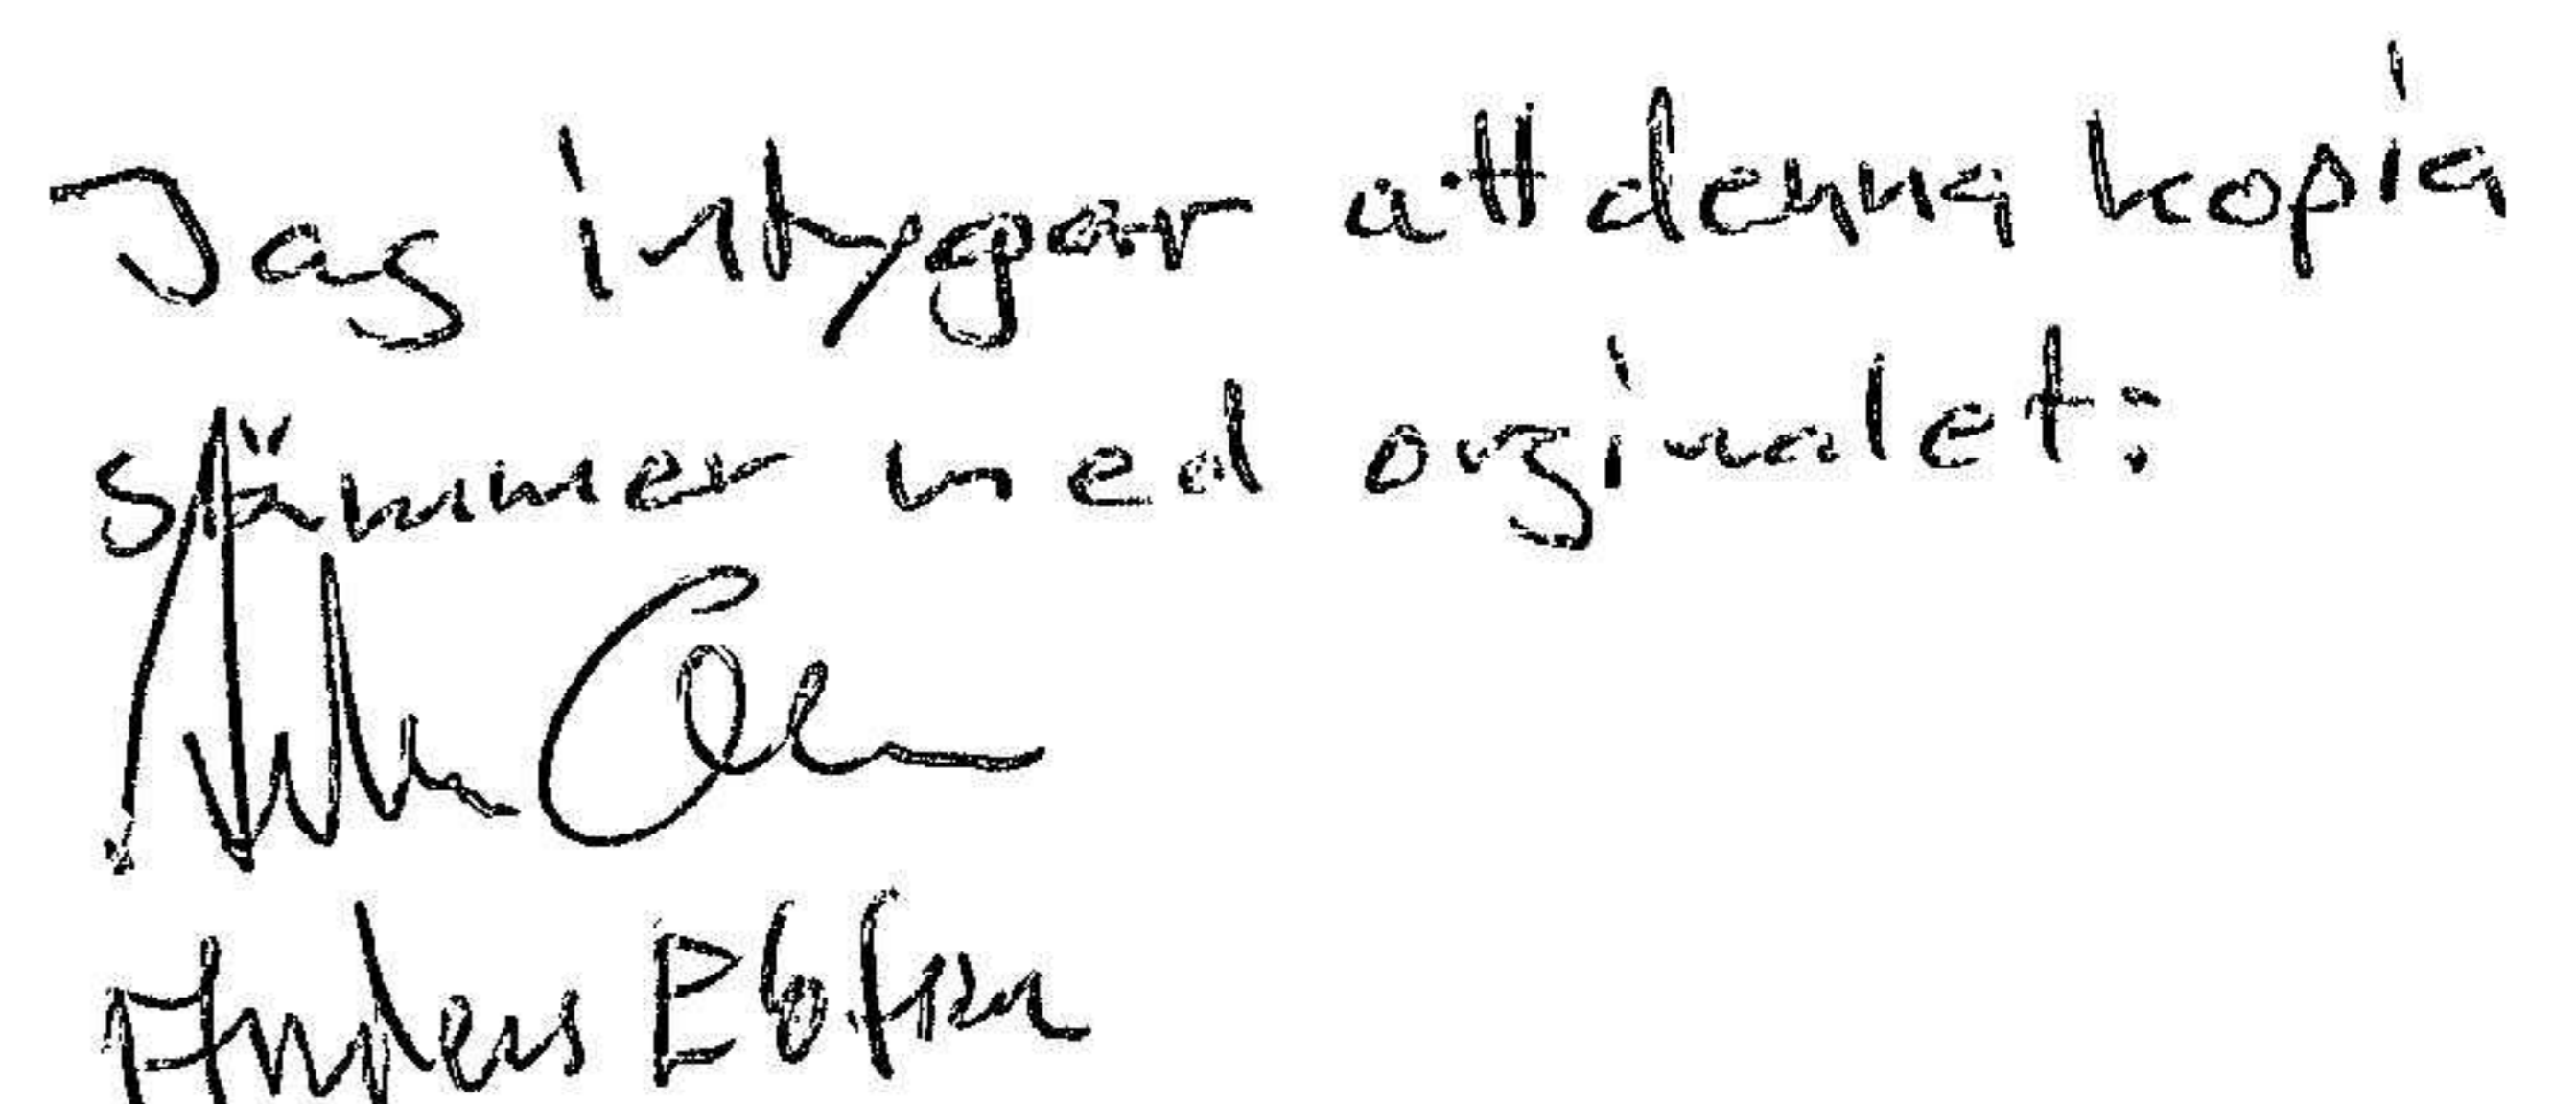 Jag intygar att denna kopia
stämmer med orginalet:
Anders